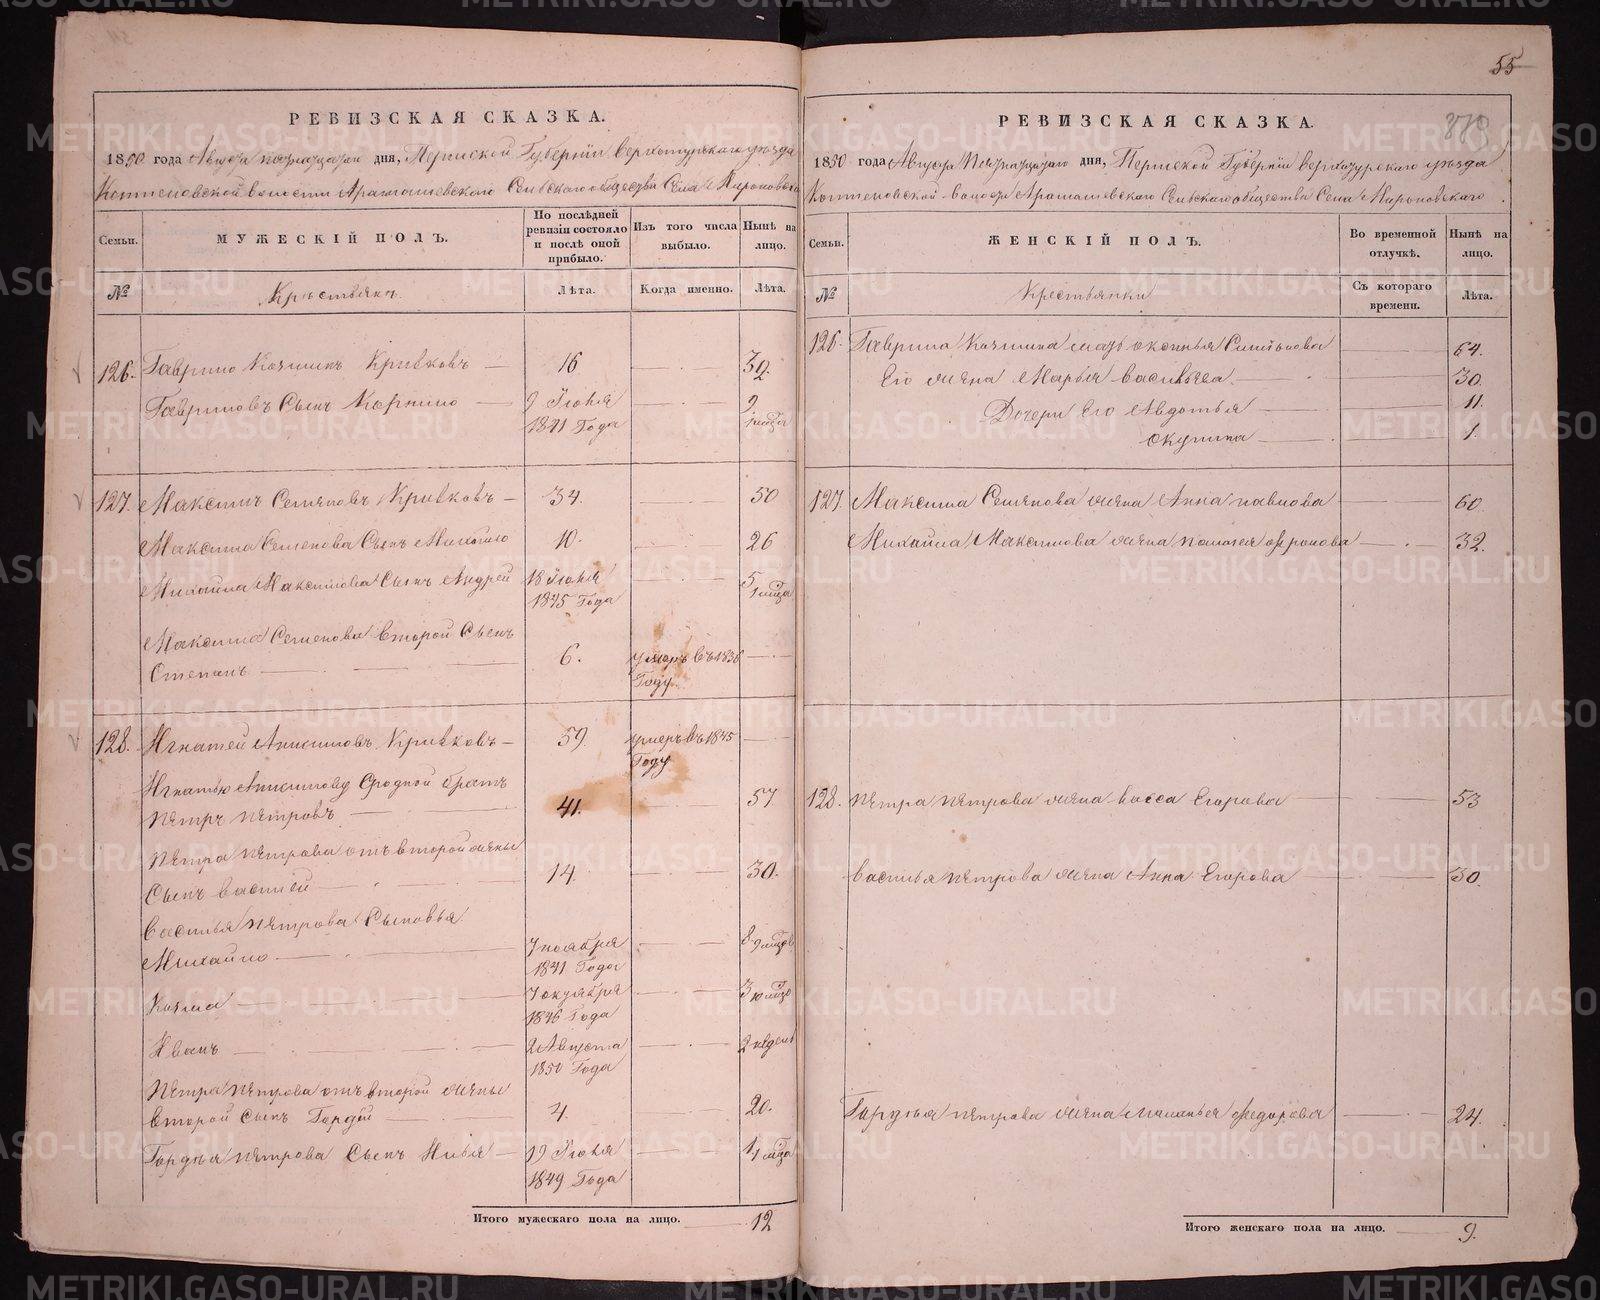 55
РЕВИЗСКАЯ СКАЗКА.
1850 года Августа пятнадцатаго дня, Пермской Губерніи Верхотурскаго уѣзда
Коптеловской волости Арамашевскаго Сельскаго общества Села Мироновскаго
Семьи.
МУЖЕСКІЙ ПОЛЪ.
По послѣдней ревизіи состояло и послѣ оной прибыло.
Изъ того числа выбыло.
Нынѣ на лицо.
№
Крестьянъ
Лѣта.
Когда именно.
Лѣта.
126. Гаврило Козминъ Кривковъ — 16 32.
Гавриловъ Сынъ Корнило — 9 Іюля 1841 Года 9
127. Максимъ Семеновъ Кривковъ — 34. 50
Максима Семенова Сынъ Михайло 10. 26
Михайла Максимова Сынъ Андрей 18 Іюля 1845 Года 5
Максима Семенова второй Сынъ
Степанъ — 6. умеръ въ 1836 Году
128. Игнатей Анисимовъ Кривковъ — 59 умеръ въ 1845 Году
Игнатью Анисимову Сродной братъ
Петръ Петровъ — 41. 57
Петра Петрова отъ второй жены
Сынъ Василей — 14 30.
Василья Петрова Сыновья
Михайло — 7 ноября 1841 Года 8
Козма 7 октября 1846 Года 3
Иванъ — 2 Августа 1850 Года 2 недели
Петра Петрова отъ второй жены
второй Сынъ Гордей — 4. 20.
Гордея Петрова Сынъ Илья — 19 Іюля 1849 Года 1
Итого мужескаго пола на лицо. 12
РЕВИЗСКАЯ СКАЗКА.
1850 года Августа Пятнадцатаго дня, Пермской Губерніи Верхотурскаго уѣзда
Коптеловской волости Арамашевскаго Сельскаго общества Села Мироновскаго
Семьи.
ЖЕНСКІЙ ПОЛЪ.
Во временной отлучкѣ.
Нынѣ на лицо.
№
Крестьянки
Съ котораго времени.
Лѣта.
126. Гаврила Козмина мать Аксинья 64.
Его жена Марья Васильева. 30.
Дочери Его Авдотья 11.
Акулина 1.
127. Максима Семенова жена Анна Павлова 60.
Михайла Максимова жена Пелагея Фролова 32.
128. Петра Петрова жена Васса Егорова 53
Василья Петрова жена Анна Егорова 30.
Гордея Петрова жена Маланья Федорова 24.
Итого женскаго пола на лицо. 9.
METRIKI.GASO-URAL.RU